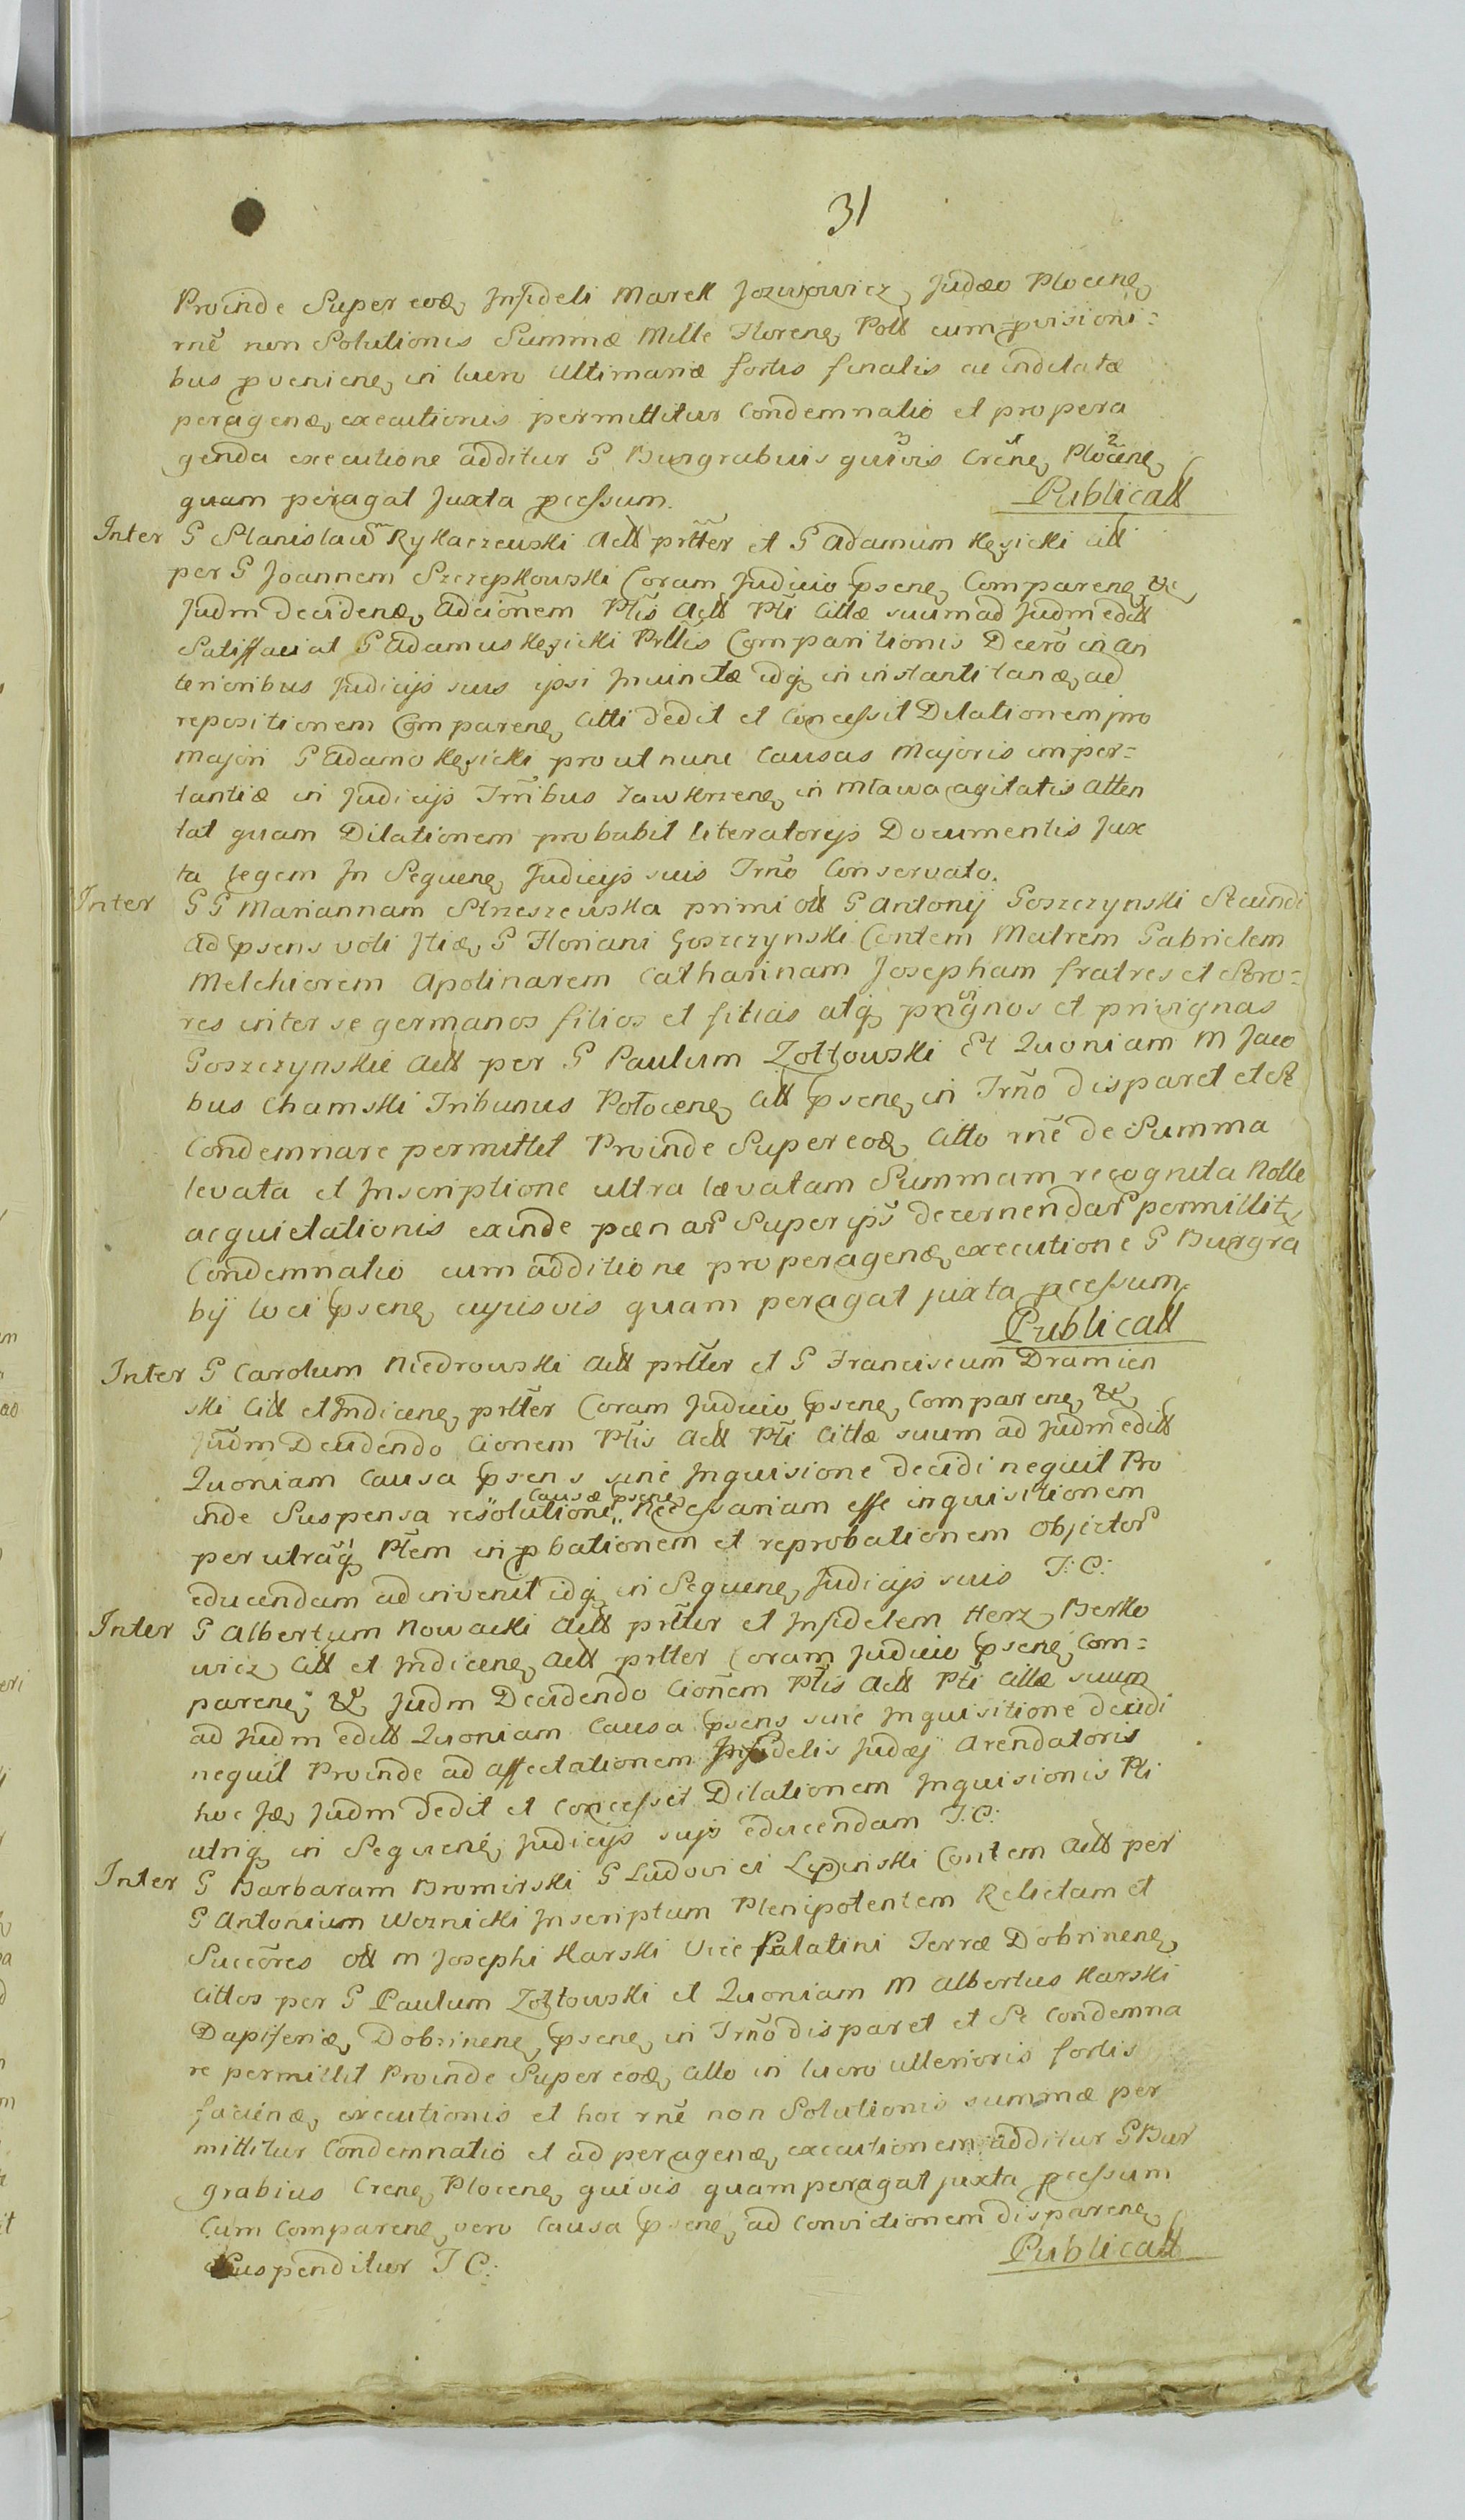 31
Proinde Super eod, Infideli Marek Jozwowicz, Judæo Plocen,
rnē non Solutionis Summæ Mille Floren, Poll cum pvisioni:
bus pvenien, in lucro Ultimariæ sortis finalis ac indilatæ
peragend, executionis permittitur Condemnatio et pro pera
genda executione additur G Burgrabius quivis Cren, Plocen,
quam peragat Juxta pcessum.
Publicatt
Inter G Stanislaum Rykaczewski Act prtter et G Adamum Kęsicki citt
per G Joannem Szczepkowski Coram Judicio psene, Comparene, &c
Judm decidend, Adcionem Ptis Act Pti Cittæ suum ad Judm edidit
Satisfaciat G Adamus Kęsicki Prttis Comparitionis Decrō in An
terioribus Judicijs suis ipsi Injunctæ idq, in instanti tand, ad
repositionem Comparene, Citti dedit et Concessit Dilationem pro
majori G Adamo Kęsicki prout nunc Causas Majoris imper-
tantiæ in Judicijs Trribus Zawkrzene, in Mława agitatis atten
tat quam Dilationem probabit literatorijs Documentis Jux
ta legem In Sequene, Judicijs suis Trnō Conservato.
Inter GG Mariannam Strzeszewska primi olt G Antonij Goszczynski Secundi
ad psens voti Itid, G Floriani Goszczynski Contem Matrem Gabrielem
Melchiorem Apolinarem Catharinam Josepham fratres et Soro-
res inter se germanos filios et filias atq, privignos et privignas
Goszczynskie Act per G Paulum Zołtowski Et Quoniam M Jaco
bus Chamski Tribunus Plocene, Citt psene, in Trnō disparet et Se
Condemnare permittit Proinde Super eod, Citto rnē de Summa
levata et Inscriptione ultra lævatam Summam recognita Nolle
acquietationis exinde pænar Super ips decernendar permittit,
Condemnatio cum additione pro peragend, executione G Burgra
bij loci psene, cujusvis quam peragat juxta pcessum.
Publicatt
Inter G Carolum Niedrowski Act prtter et G Franciscum Dramien
ski Citt et Indicene, prtter Coram Judicio psene, Comparene, &c,
Judm Decidendo Cionem Ptis Act Pti Cittæ suum ad Judm edidit
Quoniam Causa psens sine Inquisione decidi nequit Pro
inde Suspensa resolutione causæ psene, Necessariam esse inquisitionem
per utraq, Ptem in pbationem et reprobationem Objector
educendam adinvenit idq, in Sequene, Judicijs suis T: C:
Inter G Albertum Nowacki Act prtter et Infidelem Herz, Berko
wicz, Citt et Indicene, Act prtter Coram Judicio psene, Com-
parene, &c, Judm Decidendo Cionem Ptis Act Pti Cittæ suum
ad Judm edidit Quoniam Causa psens sine Inquisitione decidi
nequit Proinde ad affectationem Infidelis Judæj Arendatoris
hoc Id, Judm dedit et concessit Dilationem Inquisionis Pti
utriq, in Sequene, Judicijs suis educendam T: C:
Inter G Barbaram Bromirski G Ludovici Lępinski Contem Act per
G Antonium Woznicki Inscriptum Plenipotentem Relictam et
Succores olt M Josephi Karski Vice Palatini Terræ Dobrinene,
Cittos per G Paulum Zołtowski et Quoniam M Albertus Karski
Dapiferid, Dobrinene, psene, in Trnō disparet et Se Condemna
re permittit Proinde Super eod, Citto in lucro ulterioris sortis
faciend, executionis et hoc rnē non Solutionis summæ per
mittitur Condemnatio et ad peragend, executionem additur G Bur
grabius Crene, Plocene, quivis quam peragat juxta pcessum
Cum Comparene, vero Causa psene, ad convictionem disparene,
Suspenditur T C:
Publicatt